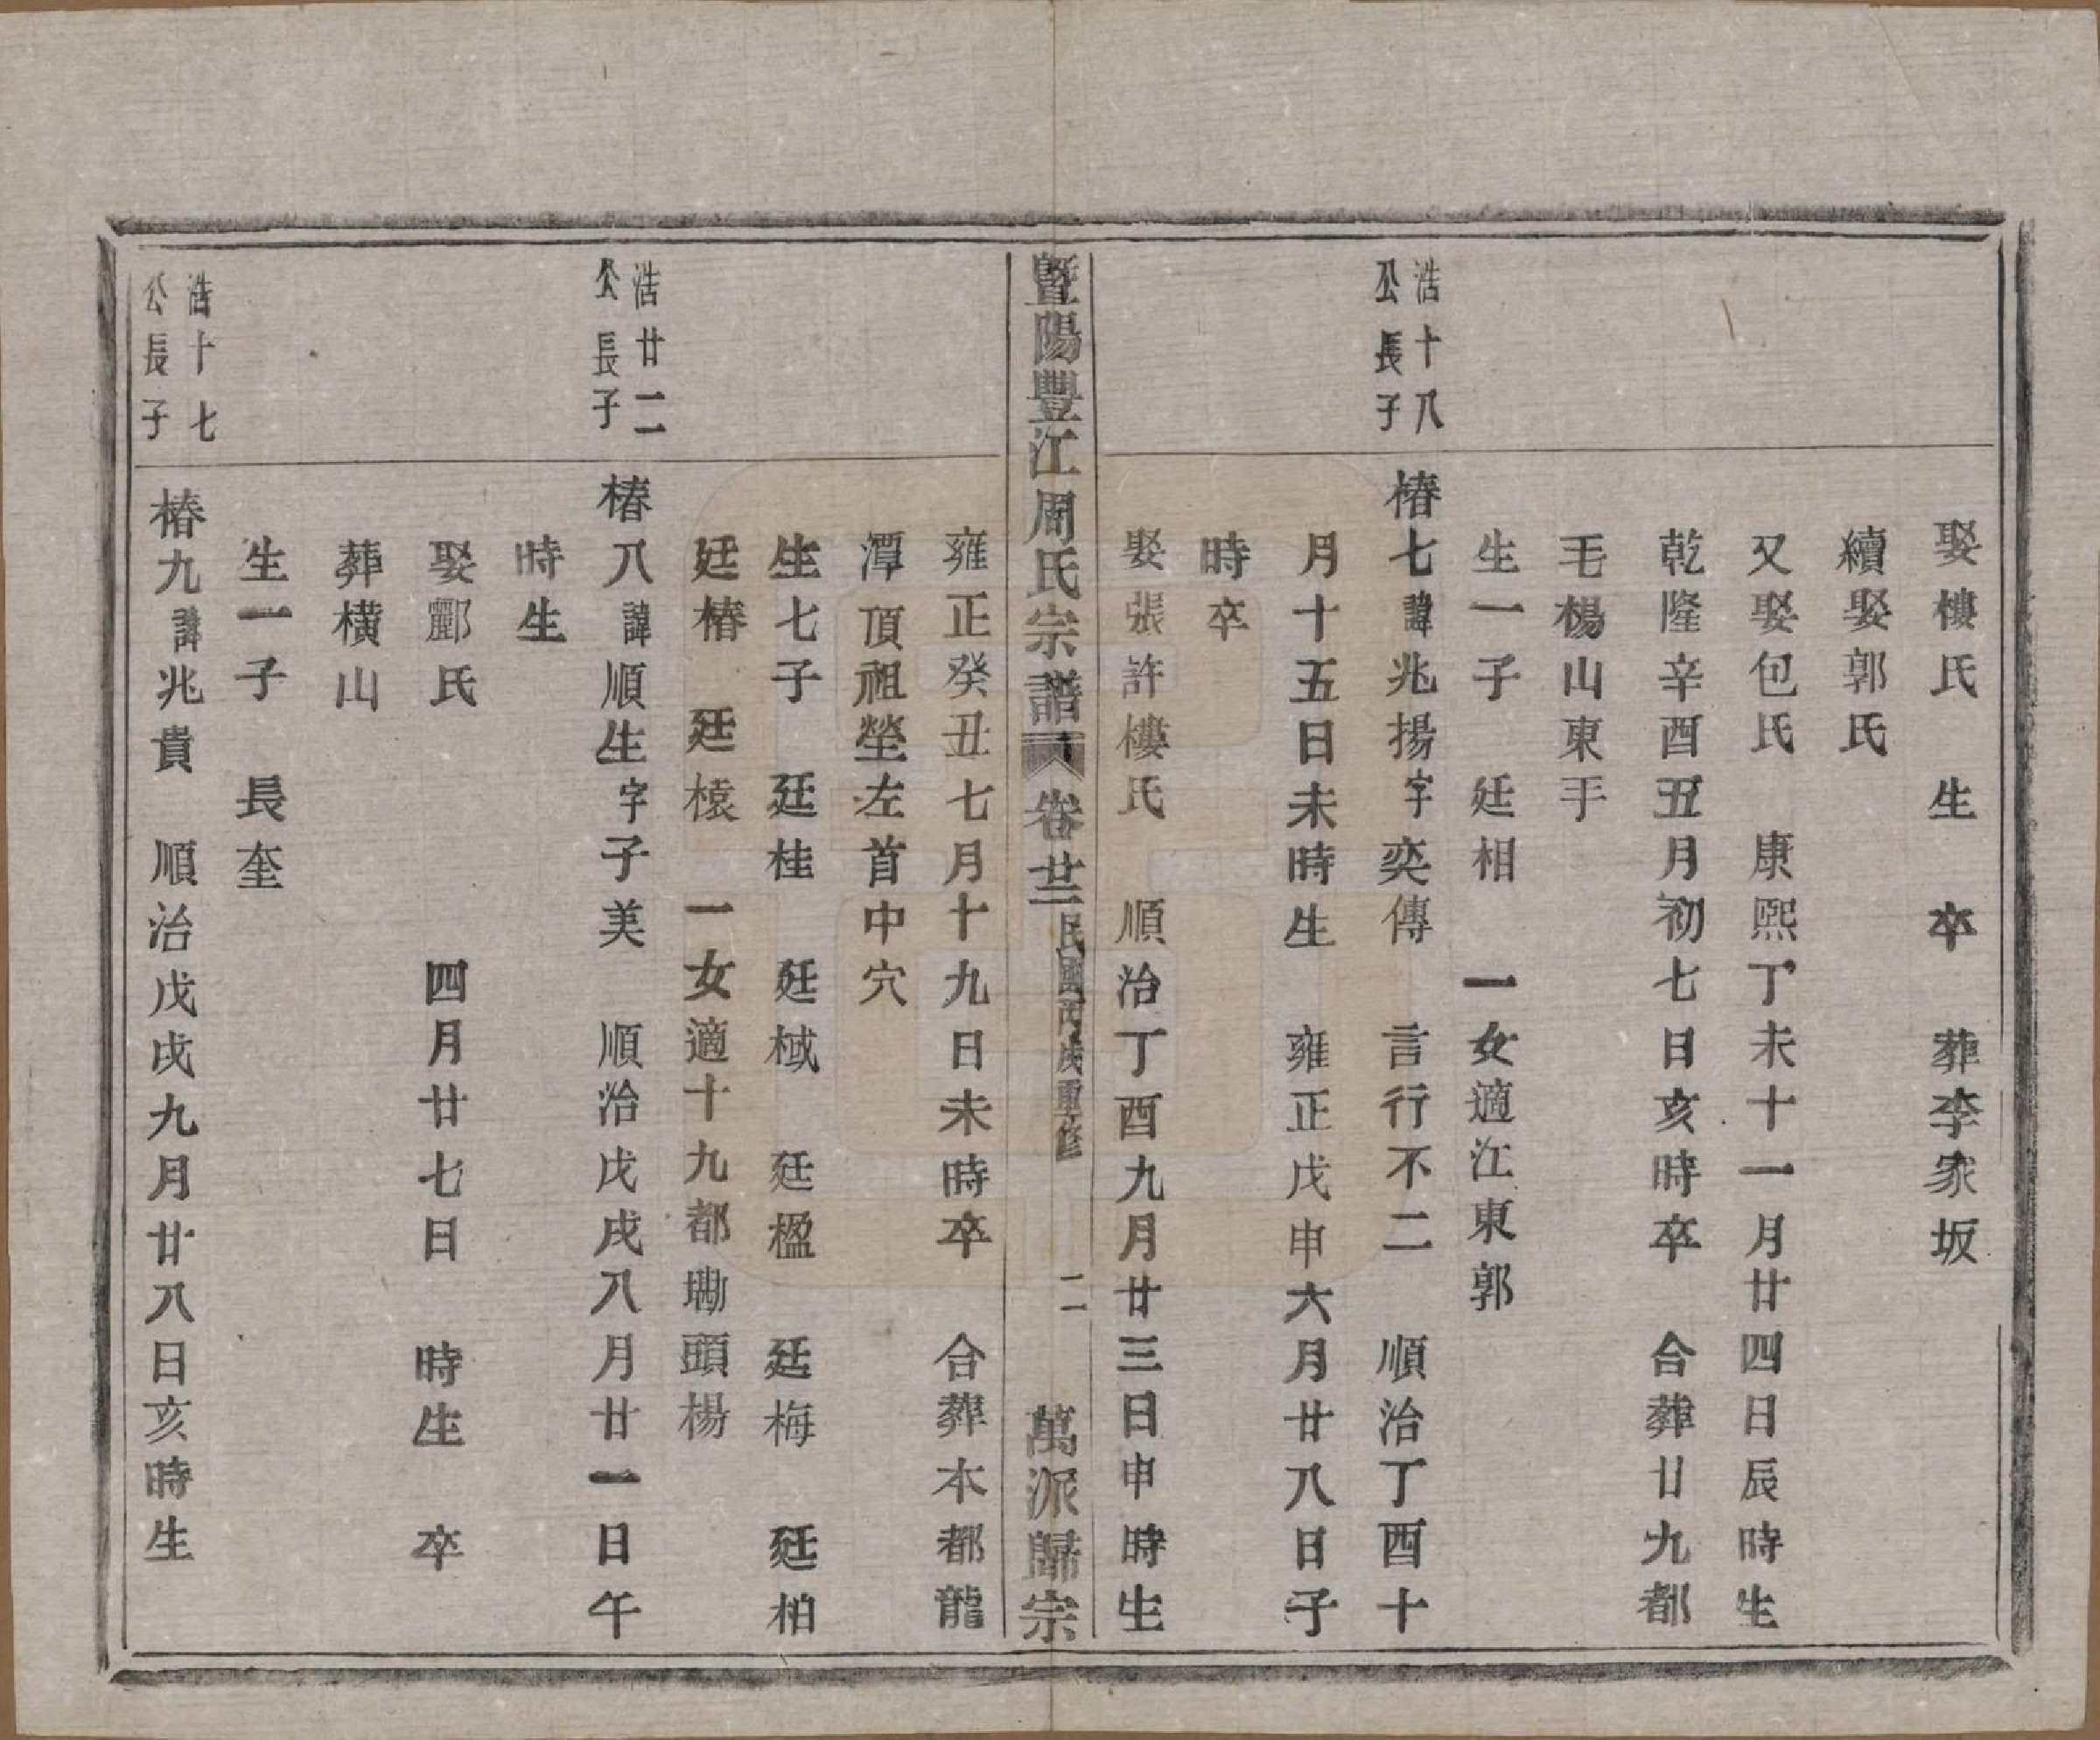 娶樓氏　生　卒　葬李家坂
續娶郭氏
又娶包氏　康熙丁未十一月廿四日辰時生
乾隆辛酉五月初七日亥時卒　合葬廿九都
毛楊山東于
生一子　廷相　一女適江東郭
浩十八
公長子
椿七諱兆揚字奕傳　言行不二　順治丁酉十
月十五日未時生　雍正戊申六月廿八日子
時卒
娶張許樓氏　順治丁酉九月廿三日申時生
暨陽豐江周氏宗譜　卷廿二　民國丙戌重修　二　萬派歸宗
雍正癸丑七月十九日未時卒　合葬本都龍
潭頂祖塋左首中穴
生七子　廷桂　廷棫　廷楹　廷梅　廷柏
廷椿　廷榱　一女適十九都墈頭楊
浩廿二
公長子
椿八諱順生字子美　順治戊戌八月廿一日午
時生
娶酈氏　四月廿七日　時生　卒
葬橫山
生一子　長奎
浩十七
公長子
椿九諱兆貴　順治戊戌九月廿八日亥時生